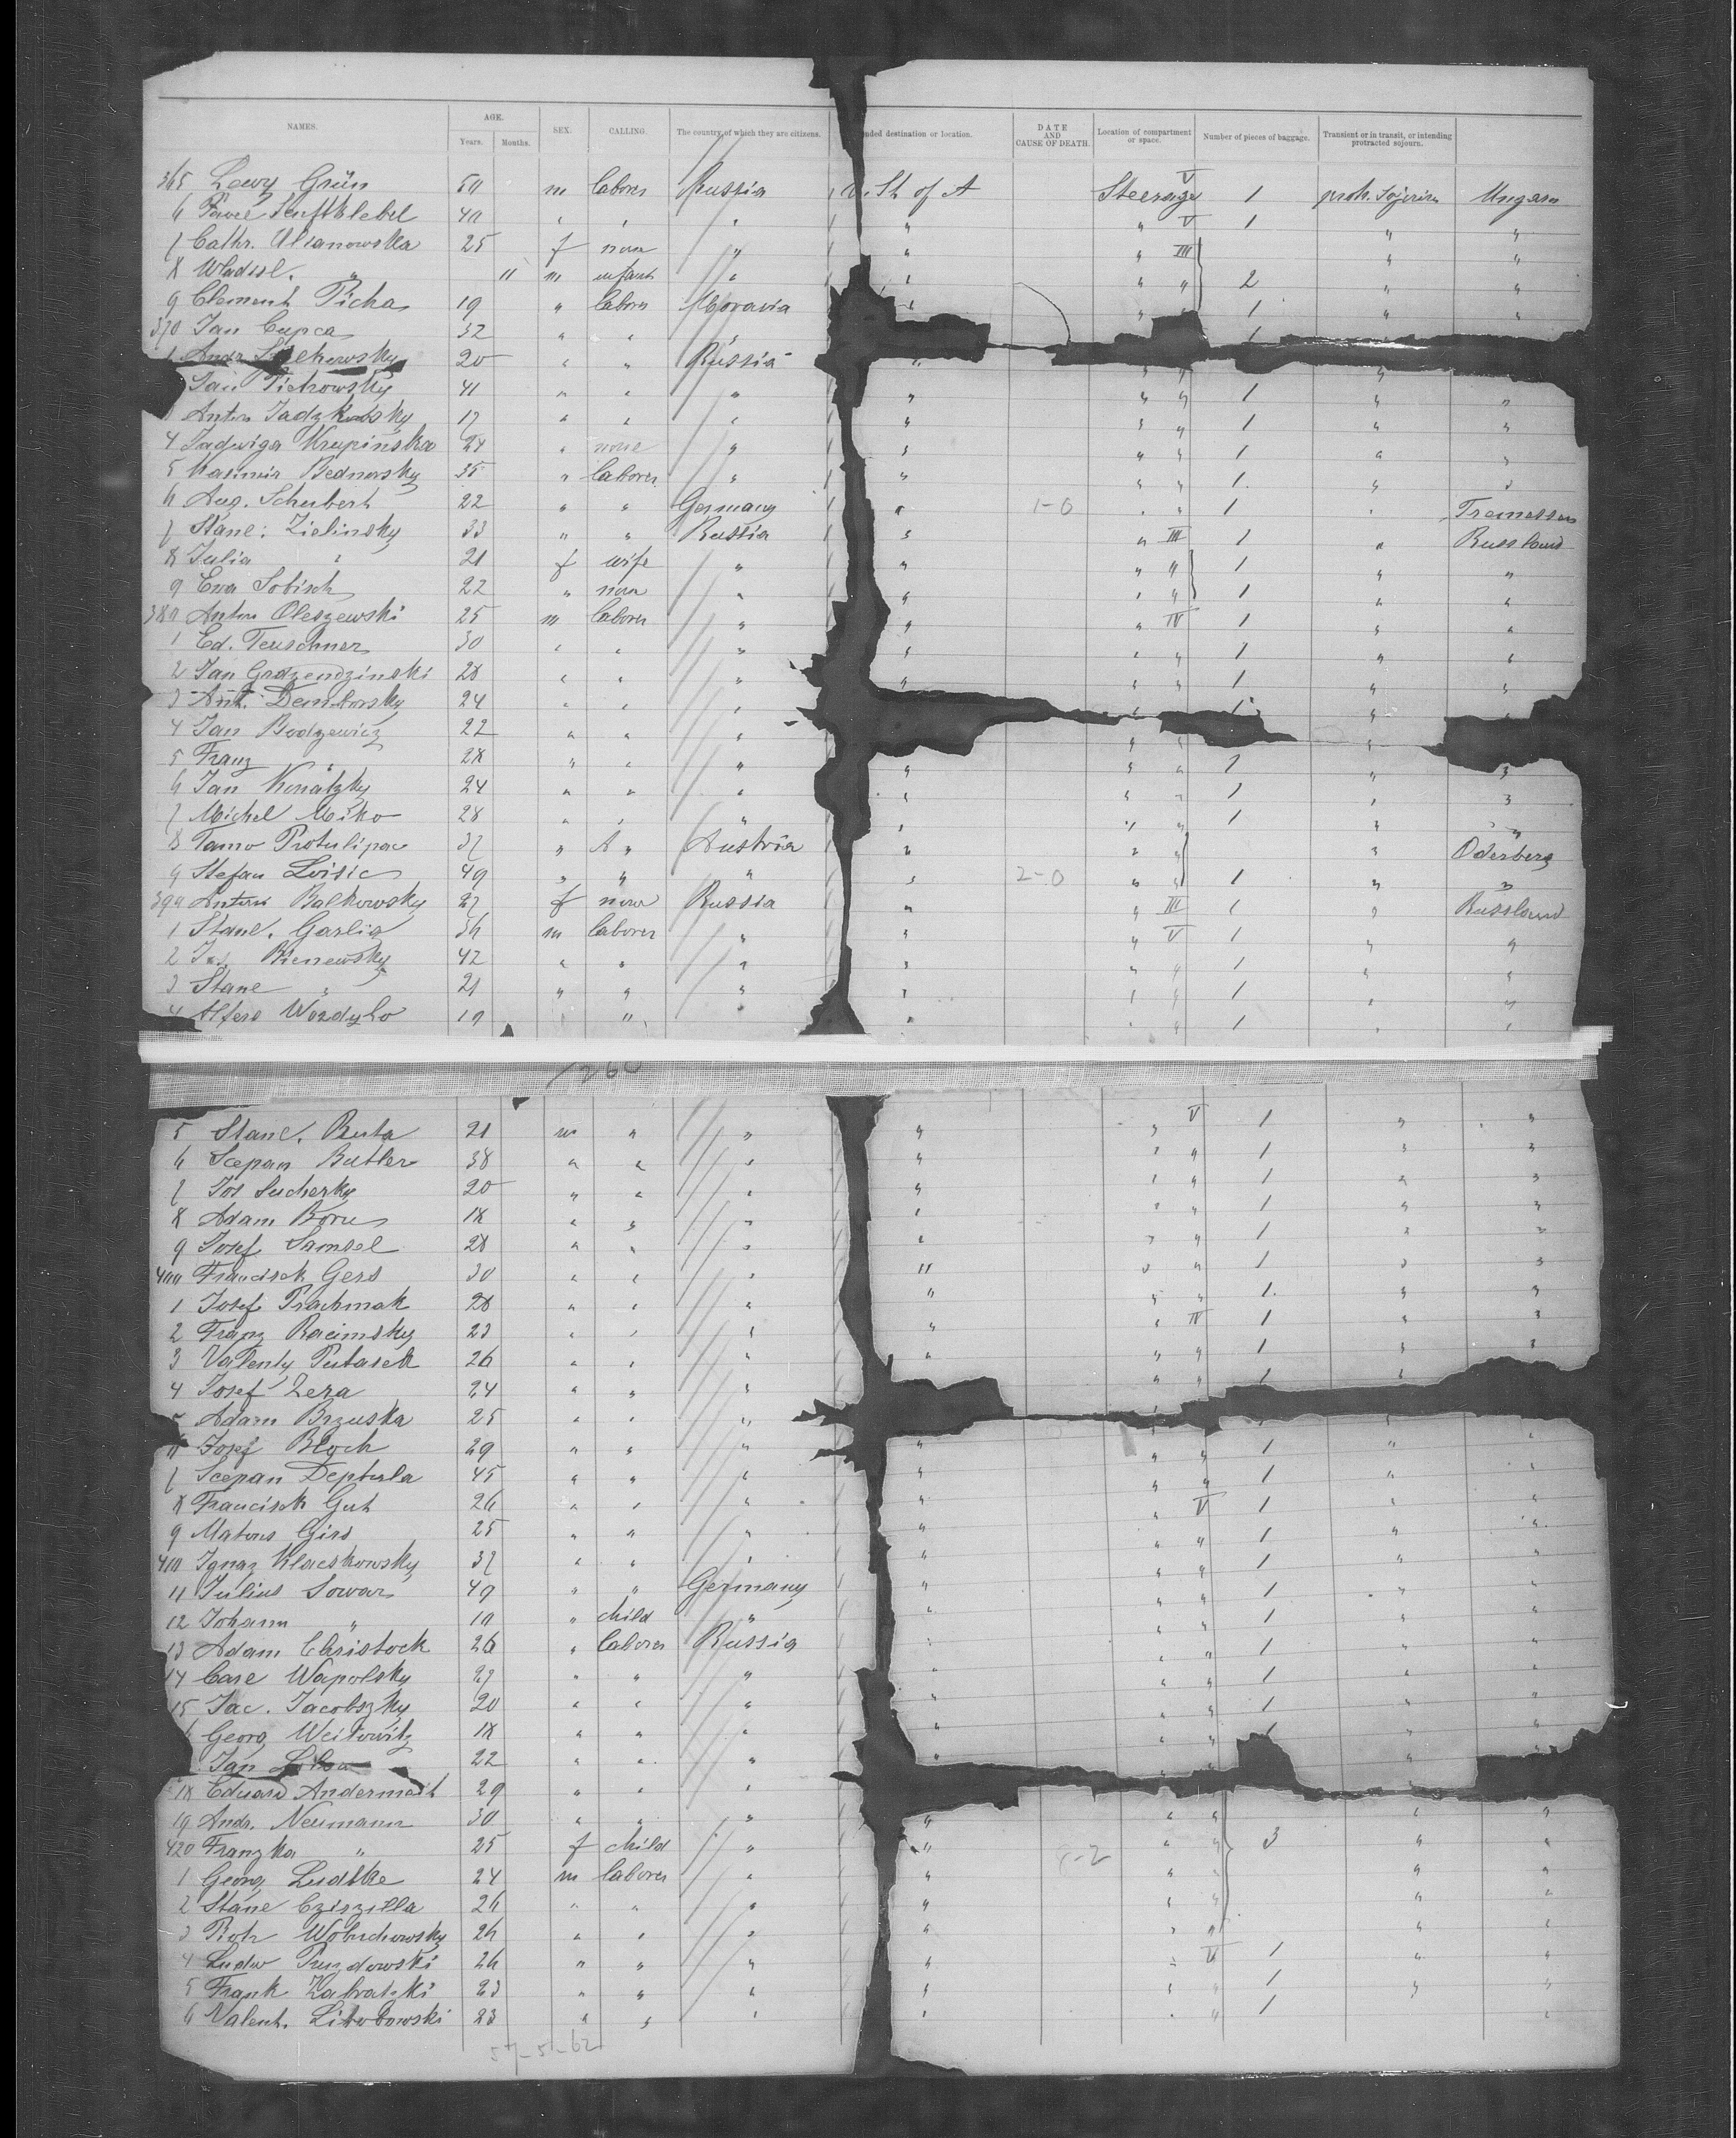 NAMES. AGE. Years. Months. SEX. CALLING. The country of which they are citizens. nded destination or location. DATE AND CAUSE OF DEATH. Location of compartment or space. Number of pieces of baggage. Transient or in transit, or intending protracted sojourn.
365 Lewy Grün 50 m laborer Russia St of A Steerage V 1 Ungarn
6 40 " " " " " V 1 " "
7 Cathr. Ulianowska 25 f none " " " III " "
8 Wladisl. " 11 m infant " " " " 2 " "
9 Clement Picha 19 " laborer Moravia " " " 1 " "
370 Jan Cupca 32 " " " 1
1 Andr. 20 " " Russia "
Jan Pietrowsky 41 " " " " " " 1 " "
Anton 17 " " " " " " 1 " "
4 Jadwiga Krupinska 24 " none " " " " 1 " "
5 Kasimir Bednarsky 35 " laborer " " " " 1 " "
6 Aug. Schubert 22 " " Germany " 1-0 " " 1 " Tremessen
7 Stanl. Zielinsky 33 " " Russia " " III 1 " Russland
8 Julia " 21 f wife " " " " 1 " "
9 Ewa Sobisch 22 " none " " " " 1 " "
380 Anton Oleszewski 25 m laborer " " " IV 1 " "
1 Ed. Teuschner 30 " " " " " " 1 " "
2 Jan Grodzendzinski 28 " " " " " " 1 " "
3 Ant. Demborsky 24 " " " " 1 "
4 Jan Bodzewicz 22 " " " " " "
5 Franz " 28 " " " " " " 1 " "
6 Jan Konatzky 24 " " " " " " 1 " "
7 Michel Miko 28 " " " " " " 1 " "
8 Tamo Protulipac 37 " " Austria " " " " Oderberg
9 Stefan Loisic 49 " " " " 2-0 " " 1 " "
390 Anton Balkowsky 27 f none Russia " " III 1 " Russland
1 Stanl. Garlig 36 m laborer " " " V 1 " "
2 Jos. Bienewsky 42 " " " " " " 1 " "
3 Stane " 21 " " " " " " 1 " "
4 Wozdylo 19 " " " " " 1 " "
1260
5 Stanl. Ruta 21 m " " " " V 1 " "
6 Scepan Butler 38 " " " " " " 1 " "
7 Jos Sucherky 20 " " " " " " 1 " "
8 Adam Boru 18 " " " " " " 1 " "
9 Josef Samsel 28 " " " " " " 1 " "
400 Francisek Gers 30 " " " " " " 1 " "
1 Josef Prachmak 28 " " " " " " 1 " "
2 Franz Racimsky 23 " " " " " IV 1 " "
3 Valenty Putasek 26 " " " " " " 1 " "
4 Josef Zera 24 " " " " " 1 "
Adam Brzuska 25 " " "
6 Josef Bloch 29 " " " " " " 1 " "
7 Scepan Deptula 45 " " " " " " 1 " "
8 Francisek Gut 26 " " " " " V 1 " "
9 Matous Girs 25 " " " " " " 1 " "
410 Ignaz Klaeskowsky 37 " " " " " " 1 " "
11 Julius Sowar 49 " " Germany " " " 1 " "
12 Johann " 10 " child " " " " 1 " "
13 Adam Christock 26 " laborer Russia " " " 1 " "
14 Carl Wapolsky 27 " " " " " " 1 " "
15 Jac. Jacobszky 20 " " " " " " 1 " "
Georg Weitowitz 18 " " " " " " 1 " "
Jan 22 " " " " " " "
18 Eduard Andermast 29 " " "
19 Andr. Neumann 30 " " " " " " " "
420 Franzka " 25 f child " " " " 3 " "
1 Georg Ludtke 24 m laborer " " " " " "
2 Stane Cziszilla 26 " " " " " " " "
3 Piotr Wobuchowsky 26 " " " " " " " "
4 Ludw Puzdowski 26 " " " " " VI 1 " "
5 Frank Zabratzki 23 " " " " " " 1 " "
6 Valent. Litobowski 23 " " " " " " 1 "
57-51-62